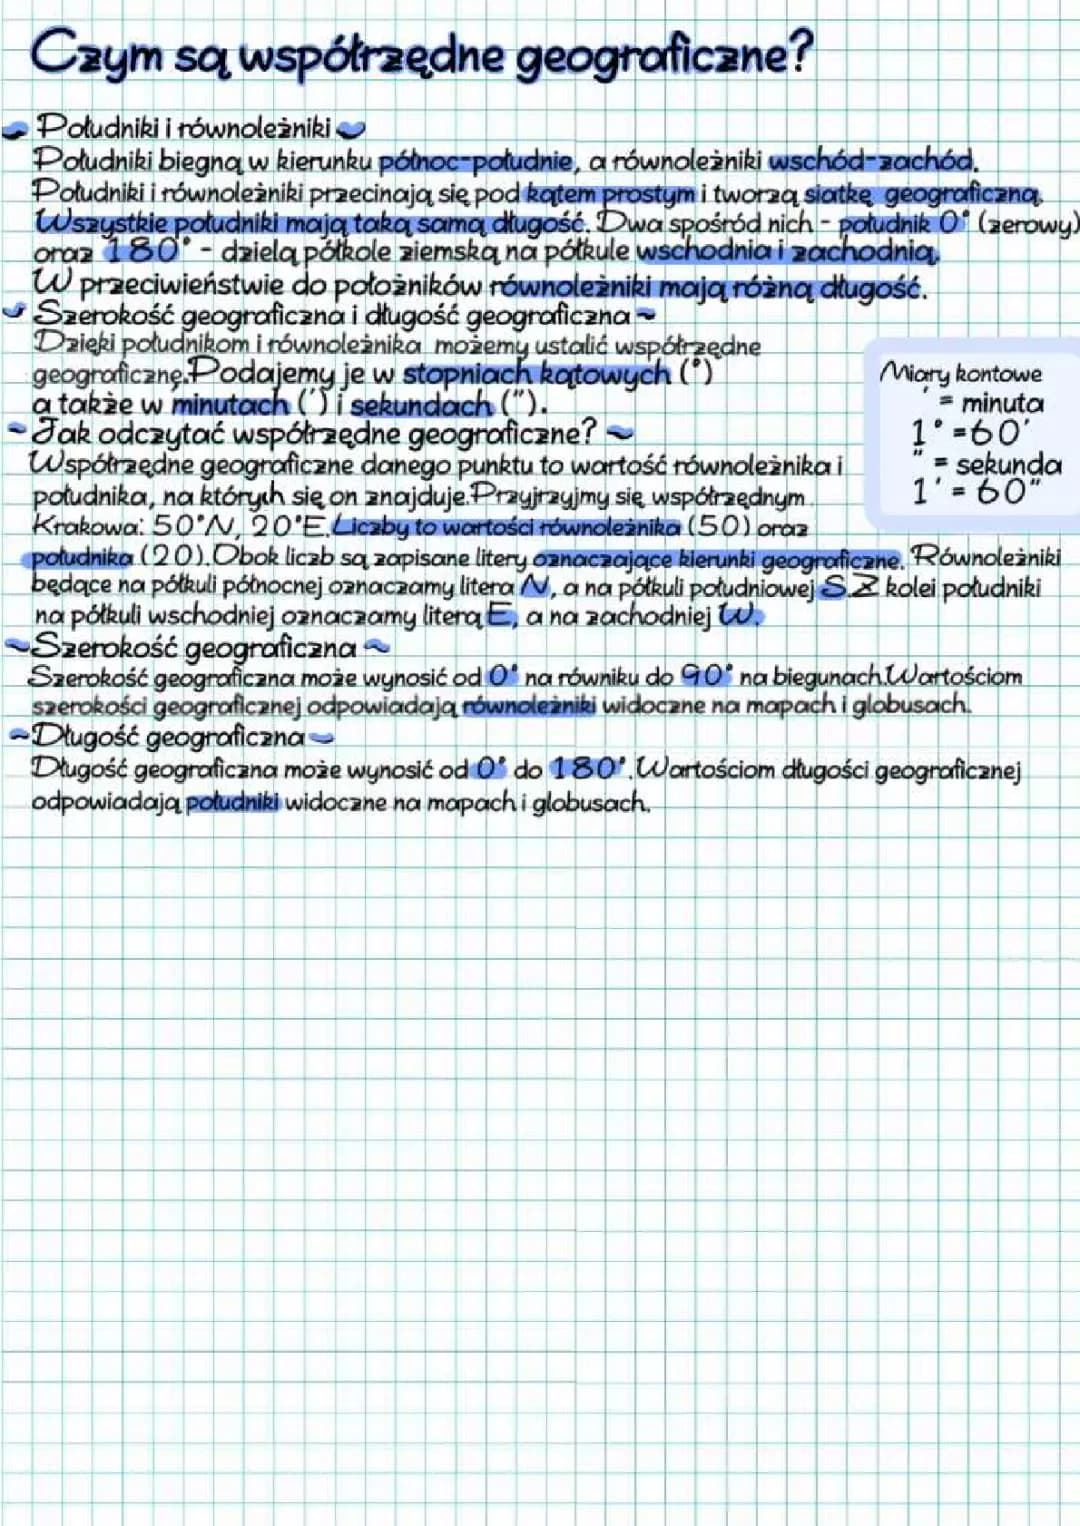 Czym są współrzędne geograficzne?
Południki i równoleżniki
Południki biegną w kierunku północ-południe, a równoleżniki wschód-zachód.
Południki i równoleżniki przecinają się pod kątem prostym i tworzą siatkę geograficzną.
Wszystkie południki mają taką samą długość. Dwa spośród nich - południk 0° (zerowy)
oraz 180° - dzielą półkole ziemską na półkule wschodnia i zachodnią.
W przeciwieństwie do położników równoleżniki mają różną długość.
Szerokość geograficzna i długość geograficzna
Dzięki południkom i równoleżnika możemy ustalić współrzędne
geograficznę.Podajemy je w stopniach kątowych (°)
a także w minutach (') i sekundach (").
Miary kontowe
' = minuta
1°=60'
" = sekunda
1'=60"
Jak odczytać współrzędne geograficzne?
Współrzędne geograficzne danego punktu to wartość równoleżnika i
południka, na których się on znajduje.Przyjrzyjmy się współrzędnym
Krakowa: 50°N, 20°E.Liczby to wartości równoleżnika (50) oraz
południka (20).Obok liczb są zapisane litery oznaczające kierunki geograficzne. Równoleżniki
będące na półkuli północnej oznaczamy litera N, a na półkuli południowej S.Z kolei południki
na półkuli wschodniej oznaczamy literą E, a na zachodniej W.
Szerokość geograficzna
Szerokość geograficzna może wynosić od 0° na równiku do 90° na biegunach.Wartościom
szerokości geograficznej odpowiadają równoleżniki widoczne na mapach i globusach.
Długość geograficzna
Długość geograficzna może wynosić od 0° do 180°.Wartościom długości geograficznej
odpowiadają południki widoczne na mapach i globusach.